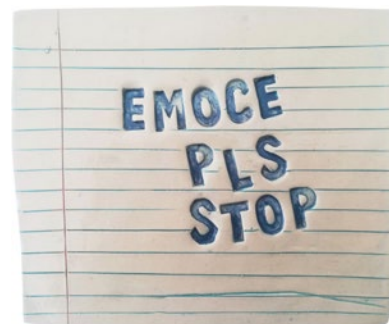 EMOCE
PLS
STOP